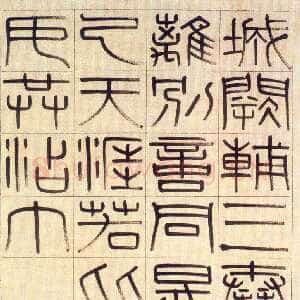 城闕輔三秦
離別意同是
己天涯若比
女共沾巾